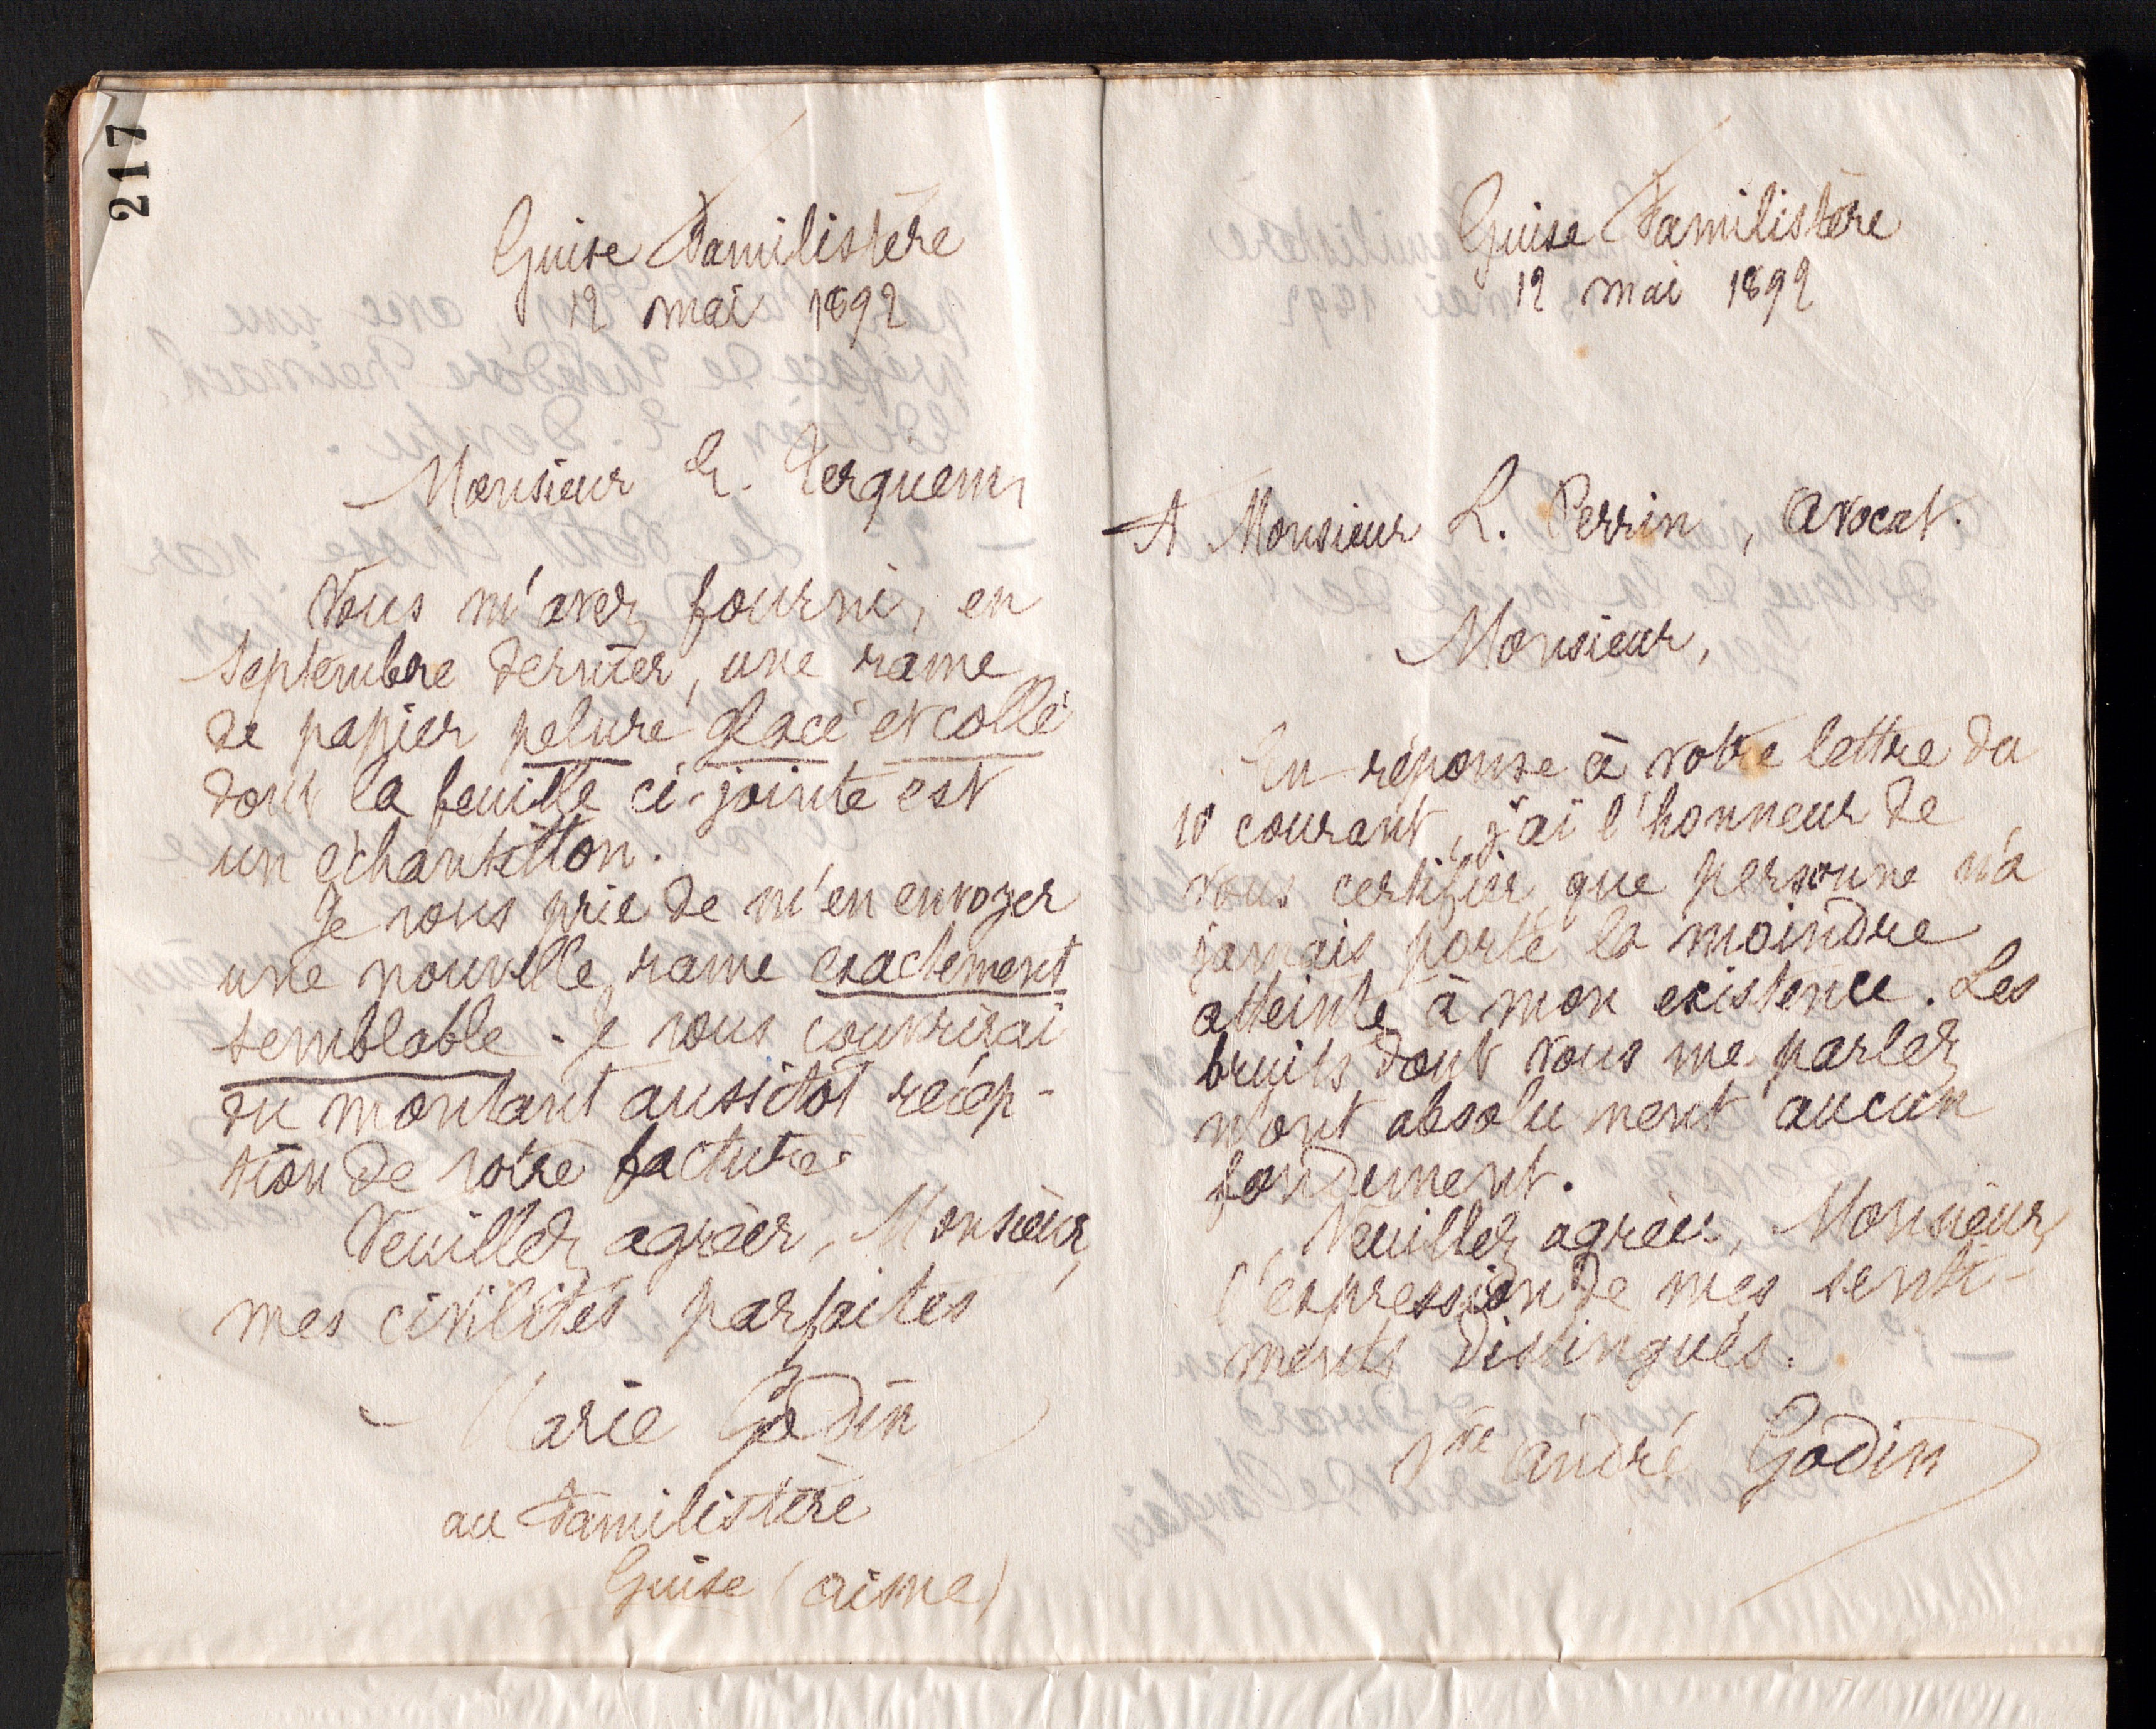 217
Guise Familistère
12 mai 1892
Monsieur E. Terquem
Vous m'avez fourni, en
septembre dernier, une rame
de papier pelure glacé et collé
dont la feuille ci-jointe est
un échantillon.
Je vous prie de m'en envoyer
une nouvelle rame exactement
semblable. Je vous couvrirai
du montant aussitôt récep-
tion de votre facture.
Veuillez agréer, Monsieur,
mes civilités parfaites
Marie Godin
au Familistère
Guise (aisne)
Guise Familistère
12 mai 1892
A Monsieur L. Perrin, avocat.
Monsieur,
En réponse à votre lettre du
10 courant, j'ai l'honneur de
vous certifier que personne n'a
jamais porté la moindre
atteinte à mon existence. Les
bruits dont vous me parlez
n'ont absolument aucun
fondement.
Veuillez agréer, Monsieur,
l'expression de mes senti-
ments distingués.
Vve André Godin